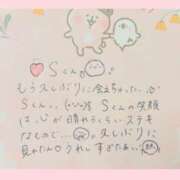 ♡Sくん
もう久しぶりに会えちゃった
Sくん、、(˶ᵕ˶)♡ Sくんの笑顔
は心が晴れるくらいステキ
なもので...久しぶりに
見れたもうれしすぎたぁぃ